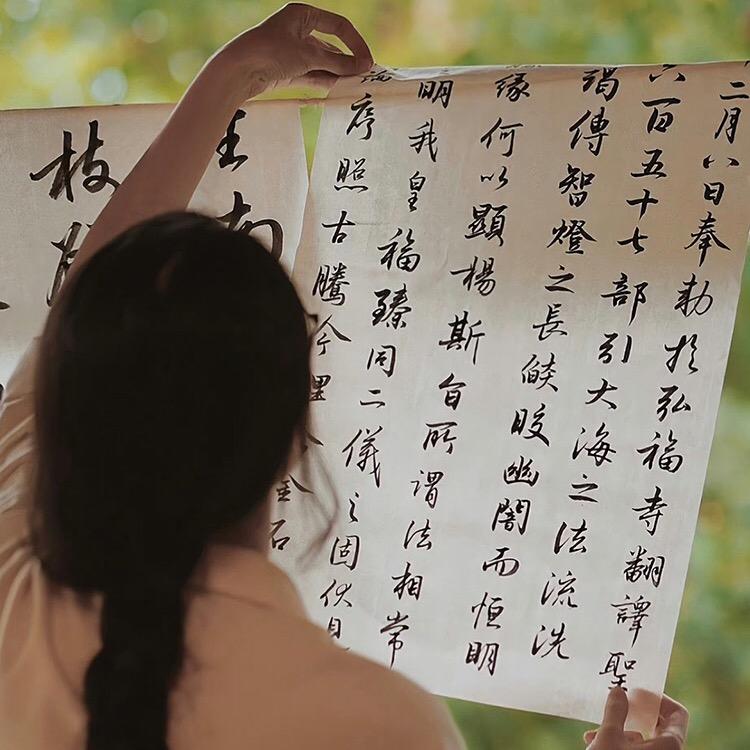 二月八日奉勅於弘福寺翻譯聖
六百五十七部引大海之法流洗
竭傳智燈之長焰皎幽闇而恒明
緣何以顯楊斯旨所謂法相常
明我皇福臻同二儀之固伏見
序照古騰今理含金石
南
枝